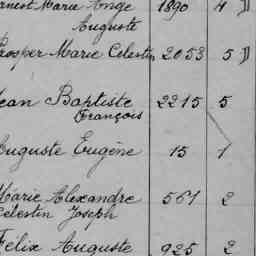 Ernest Marie Ange 1890 4 ))
Auguste
Prosper Marie Celestin 2053 5 ))
Jean Baptiste 2215 5
François
Auguste Eugène 15 1
Marie Alexandre 561 2
Celestin Joseph
Félix Auguste 925 2